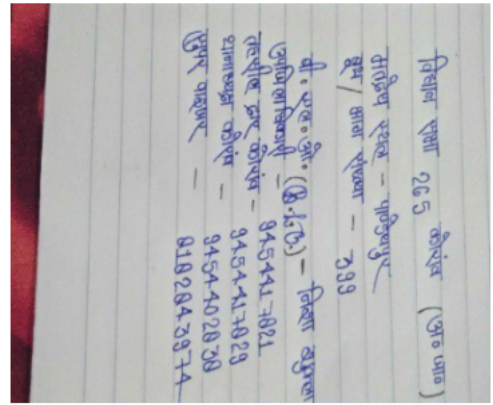 विधान सभा 265 कोरांव (अ० जा०)
मतदेय स्थल - पाण्डेयपुर
बूथ / भाग संख्या - 399
बी. एल. ओ. (B.L.O) - निशा
उपजिलाधिकारी - 9454417821
तहसीलदार कोरांव - 9454417829
थानाध्यक्ष कोरांव - 9454402830
सुपर वाइजर - 8182843974